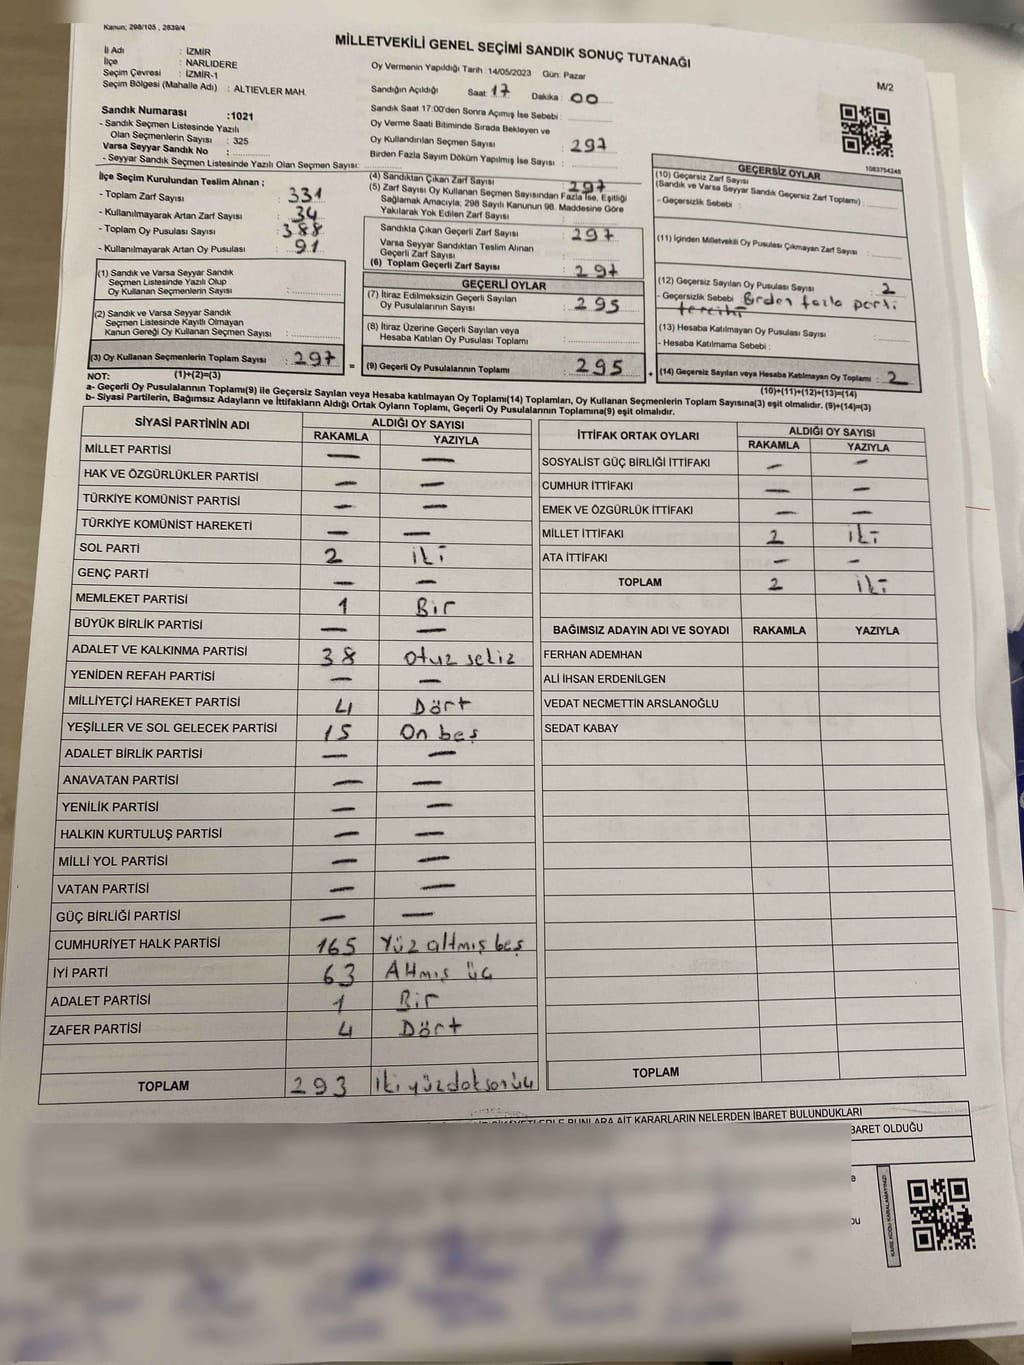 Kanun; 298/105 , 2839/4
MİLLETVEKİLİ GENEL SEÇİMİ SANDIK SONUÇ TUTANAĞI
M/2
İl Adı : İZMİR
İlçe : NARLIDERE
Seçim Çevresi : İZMİR-1
Seçim Bölgesi (Mahalle Adı) : ALTIEVLER MAH.
Oy Vermenin Yapıldığı Tarih :14/05/2023 Gün: Pazar
Sandığın Açıldığı Saat: 17 Dakika: 00
Sandık Saat 17:00'den Sonra Açımış İse Sebebi :
Oy Verme Saati Bitiminde Sırada Bekleyen ve
Oy Kullandırılan Seçmen Sayısı : 297
Birden Fazla Sayım Döküm Yapılmış İse Sayısı :
Sandık Numarası :1021
- Sandık Seçmen Listesinde Yazılı
Olan Seçmenlerin Sayısı : 325
Varsa Seyyar Sandık No :
- Seyyar Sandık Seçmen Listesinde Yazılı Olan Seçmen Sayısı:
İlçe Seçim Kurulundan Teslim Alınan ;
- Toplam Zarf Sayısı : 331
- Kullanılmayarak Artan Zarf Sayısı : 34
- Toplam Oy Pusulası Sayısı : 388
- Kullanılmayarak Artan Oy Pusulası : 91
(1) Sandık ve Varsa Seyyar Sandık
Seçmen Listesinde Yazılı Olup
Oy Kullanan Seçmenlerin Sayısı :
(2) Sandık ve Varsa Seyyar Sandık
Seçmen Listesinde Kayıtlı Olmayan
Kanun Gereği Oy Kullanan Seçmen Sayısı :
(3) Oy Kullanan Seçmenlerin Toplam Sayısı : 297
(4) Sandıktan Çıkan Zarf Sayısı : 297
(5) Zarf Sayısı Oy Kullanan Seçmen Sayısından Fazla İse, Eşitliği
Sağlamak Amacıyla, 298 Sayılı Kanunun 98. Maddesine Göre
Yakılarak Yok Edilen Zarf Sayısı
Sandıkta Çıkan Geçerli Zarf Sayısı : 297
Varsa Seyyar Sandıktan Teslim Alınan
Geçerli Zarf Sayısı
(6) Toplam Geçerli Zarf Sayısı : 297
GEÇERLİ OYLAR
(7) İtiraz Edilmeksizin Geçerli Sayılan
Oy Pusulalarının Sayısı : 295
(8) İtiraz Üzerine Geçerli Sayılan veya
Hesaba Katılan Oy Pusulası Toplamı :
= (9) Geçerli Oy Pusulalarının Toplamı : 295
1083754248
GEÇERSİZ OYLAR
(10) Geçersiz Zarf Sayısı
(Sandık ve Varsa Seyyar Sandık Geçersiz Zarf Toplamı) :
- Geçersizlik Sebebi :
(11) İçinden Milletvekili Oy Pusulası Çıkmayan Zarf Sayısı :
(12) Geçersiz Sayılan Oy Pusulası Sayısı : 2
- Geçersizlik Sebebi Birden fazla parti
tercihi
(13) Hesaba Katılmayan Oy Pusulası Sayısı
- Hesaba Katılmama Sebebi :
+ (14) Geçersiz Sayılan veya Hesaba Katılmayan Oy Toplamı : 2
NOT: (1)+(2)=(3)
(10)+(11)+(12)+(13)=(14)
a- Geçerli Oy Pusulalarının Toplamı(9) ile Geçersiz Sayılan veya Hesaba katılmayan Oy Toplamı(14) Toplamları, Oy Kullanan Seçmenlerin Toplam Sayısına(3) eşit olmalıdır. (9)+(14)=(3)
b- Siyasi Partilerin, Bağımsız Adayların ve İttifakların Aldığı Ortak Oyların Toplamı, Geçerli Oy Pusulalarının Toplamına(9) eşit olmalıdır.
SİYASİ PARTİNİN ADI ALDIĞI OY SAYISI
RAKAMLA YAZIYLA
MİLLET PARTİSİ — —
HAK VE ÖZGÜRLÜKLER PARTİSİ — —
TÜRKİYE KOMÜNİST PARTİSİ — —
TÜRKİYE KOMÜNİST HAREKETİ — —
SOL PARTİ 2 iki
GENÇ PARTİ — —
MEMLEKET PARTİSİ 1 Bir
BÜYÜK BİRLİK PARTİSİ — —
ADALET VE KALKINMA PARTİSİ 38 otuz sekiz
YENİDEN REFAH PARTİSİ — —
MİLLİYETÇİ HAREKET PARTİSİ 4 Dört
YEŞİLLER VE SOL GELECEK PARTİSİ 15 On beş
ADALET BİRLİK PARTİSİ — —
ANAVATAN PARTİSİ — —
YENİLİK PARTİSİ — —
HALKIN KURTULUŞ PARTİSİ — —
MİLLİ YOL PARTİSİ — —
VATAN PARTİSİ — —
GÜÇ BİRLİĞİ PARTİSİ — —
CUMHURİYET HALK PARTİSİ 165 Yüz altmış beş
İYİ PARTİ 63 Altmış üç
ADALET PARTİSİ 1 Bir
ZAFER PARTİSİ 4 Dört
TOPLAM 293 iki yüz doksan üç
İTTİFAK ORTAK OYLARI ALDIĞI OY SAYISI
RAKAMLA YAZIYLA
SOSYALİST GÜÇ BİRLİĞİ İTTİFAKI — —
CUMHUR İTTİFAKI — —
EMEK VE ÖZGÜRLÜK İTTİFAKI — —
MİLLET İTTİFAKI 2 iki
ATA İTTİFAKI — —
TOPLAM 2 iki
BAĞIMSIZ ADAYIN ADI VE SOYADI RAKAMLA YAZIYLA
FERHAN ADEMHAN
ALİ İHSAN ERDENİLGEN
VEDAT NECMETTİN ARSLANOĞLU
SEDAT KABAY
TOPLAM
BUNLARA AİT KARARLARIN NELERDEN İBARET BULUNDUKLARI
BARET OLDUĞU
KARE KODU KARALAMAYINIZ!